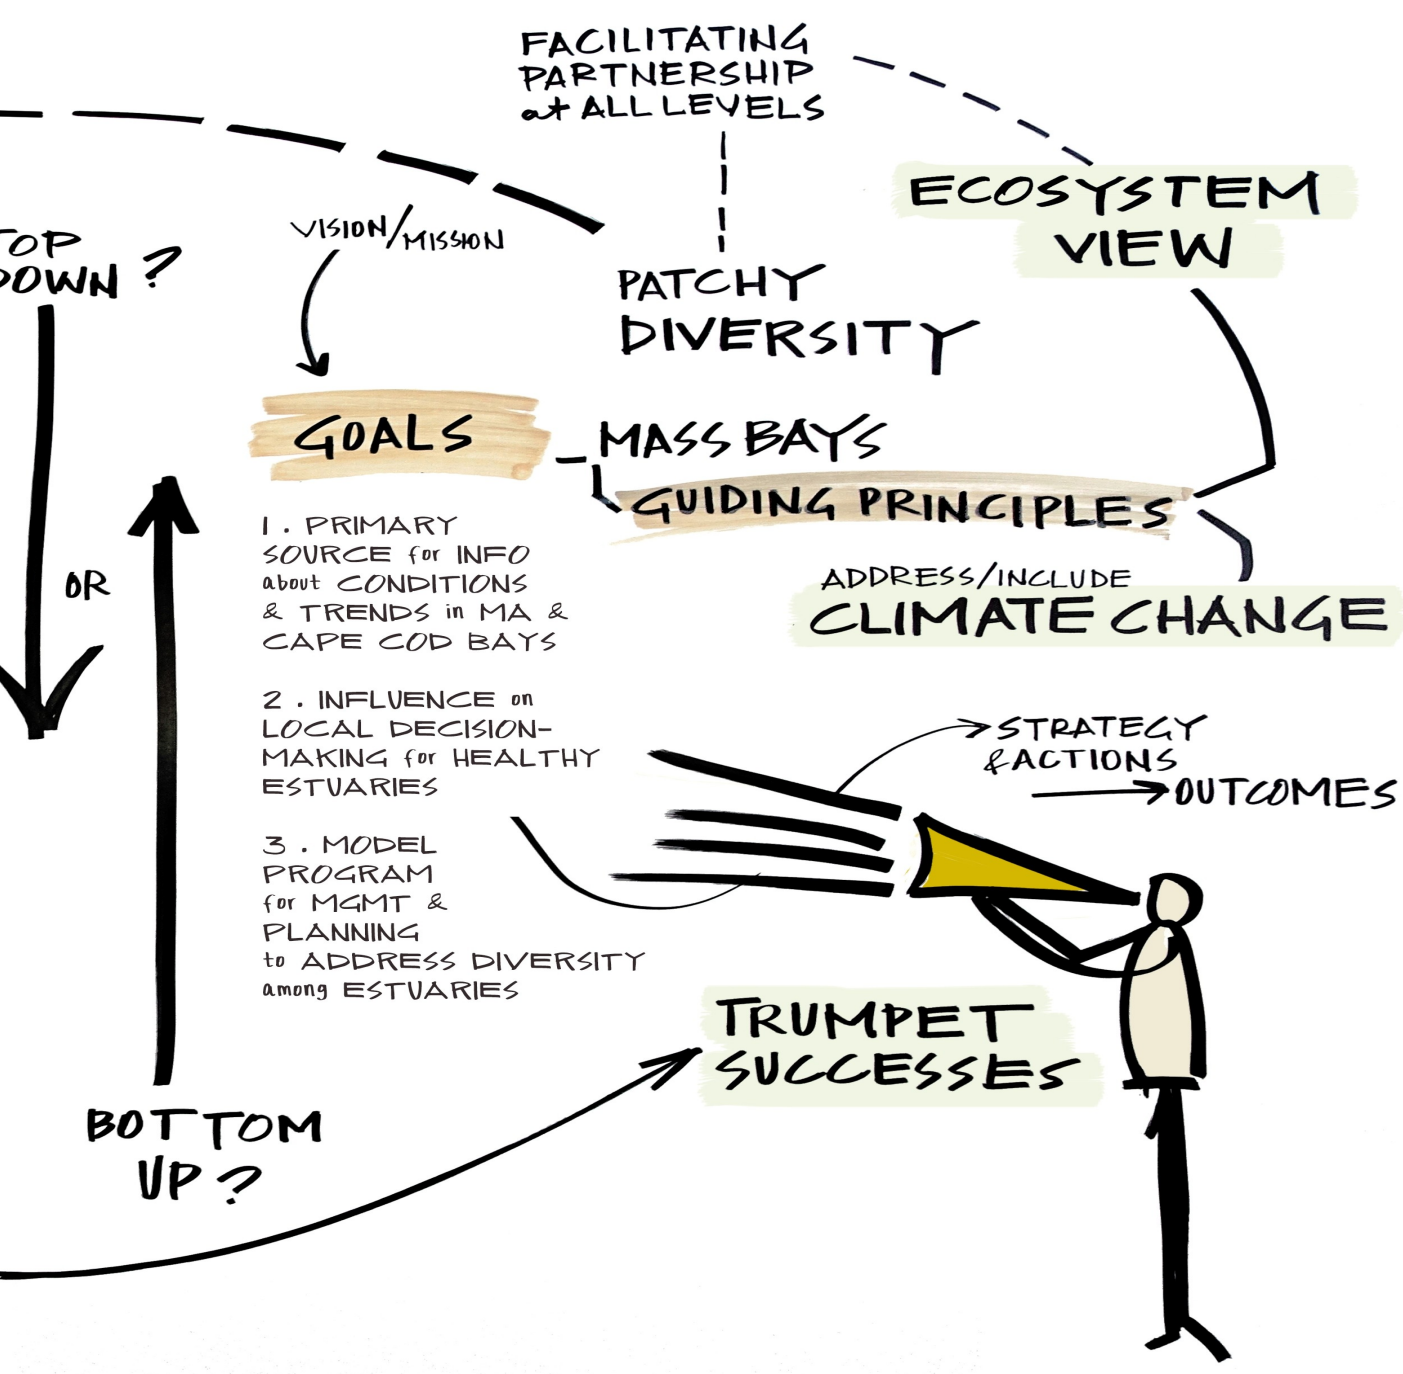 FACILITATING
PARTNERSHIP
at ALL LEVELS
ECOSYSTEM
VIEW
TOP
DOWN?
VISION/MISSION
PATCHY
DIVERSITY
GOALS
MASS BAYS
GUIDING PRINCIPLES
ADDRESS/INCLUDE
CLIMATE CHANGE
1. PRIMARY
SOURCE for INFO
about CONDITIONS
& TRENDS in MA &
CAPE COD BAYS
OR
2. INFLUENCE on
LOCAL DECISION-
MAKING for HEALTHY
ESTUARIES
3. MODEL
PROGRAM
for MGMT &
PLANNING
to ADDRESS DIVERSITY
among ESTUARIES
STRATEGY
& ACTIONS
OUTCOMES
TRUMPET
SUCCESSES
BOTTOM
UP?